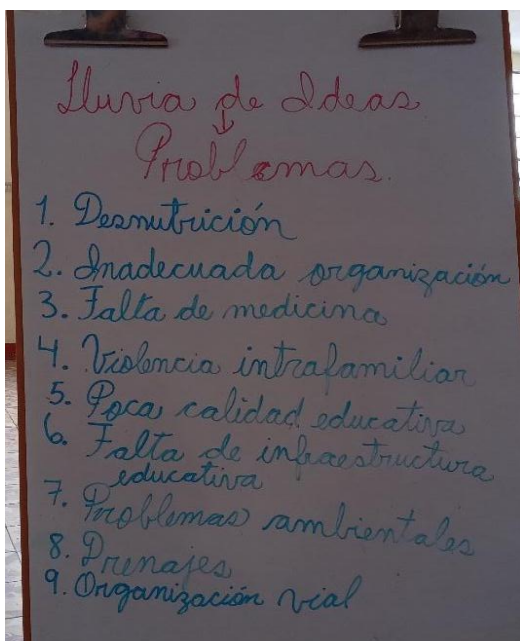 Lluvia de Ideas
↓
Problemas.
1. Desnutrición
2. Inadecuada organización
3. Falta de medicina
4. Violencia intrafamiliar
5. Poca calidad educativa
6. Falta de infraestructura
educativa
7. Problemas ambientales
8. Drenajes
9. Organización vial